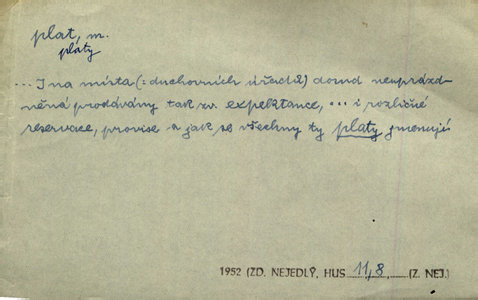 plat, m.
platy
... I na místa (= duchovních úřadů) dosud neuprázd-
něná prodávány tak zv. expektance, ... i rozličné
reservace, provise a jak se všechny ty platy jmenují
1952 (ZD. NEJEDLÝ, HUS 11, 8, (Z. NEJ.)